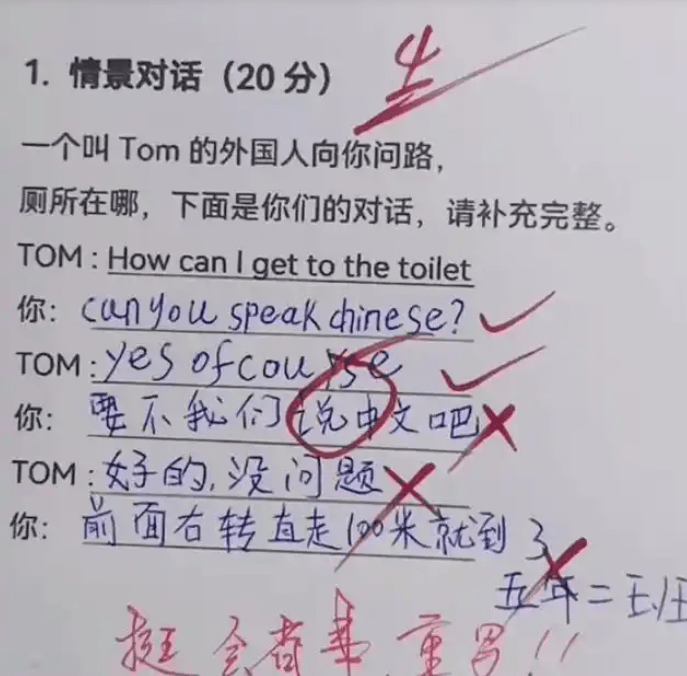 4
1. 情景对话（20 分）
一个叫 Tom 的外国人向你问路，
厕所在哪，下面是你们的对话，请补充完整。
TOM : How can I get to the toilet
你： can you speak chinese?
TOM : yes of course
你： 要不我们说中文吧
TOM : 好的，没问题
你： 前面右转直走100米就到了
五年二班
挺会省事，重写!!